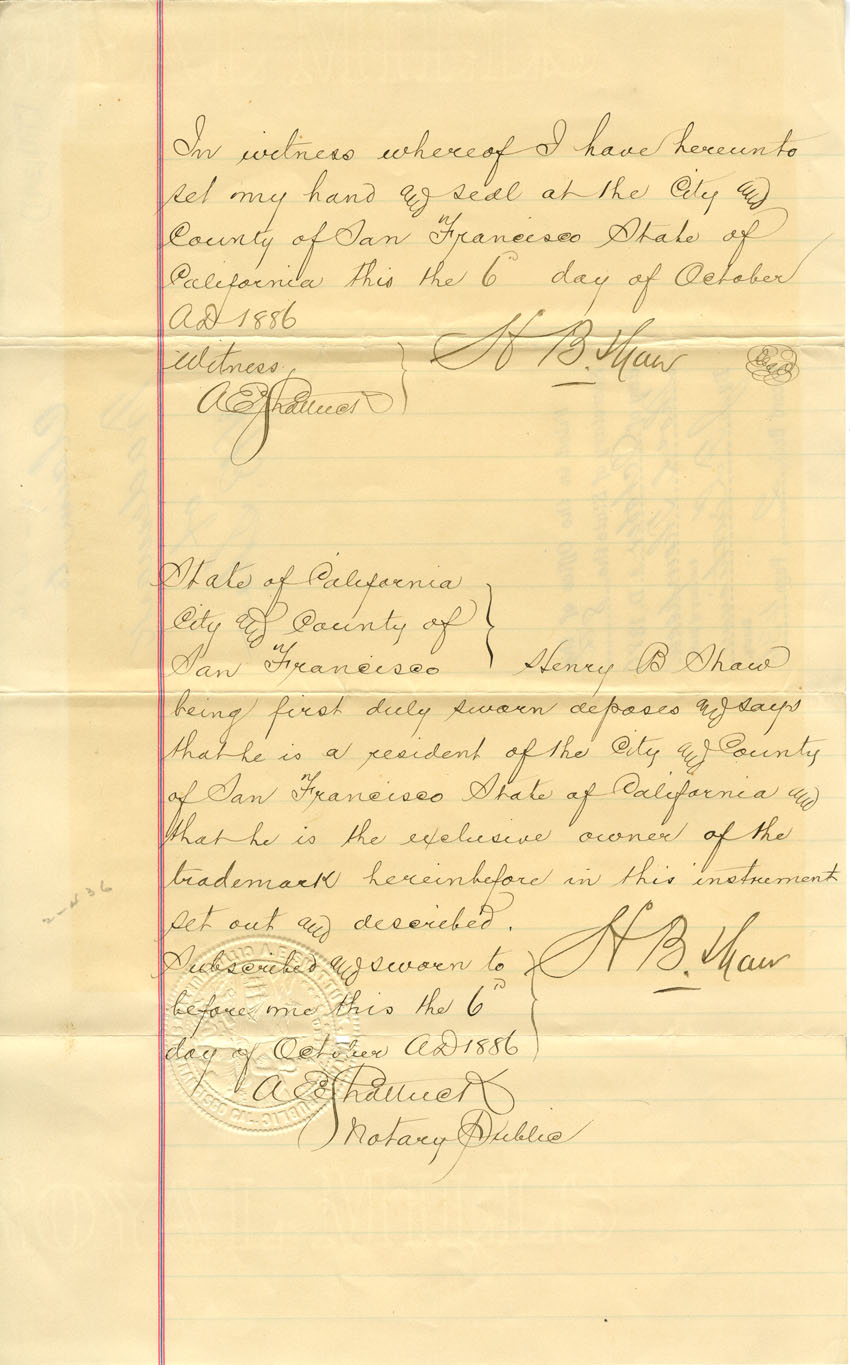 In witness whereof I have hereunto
set my hand and seal at the City and
County of San Francisco State of
California this the 6" day of October
AD 1886
Witness
H B. Shaw
Seal
A E Shattuck
State of California
City and County of
San Francisco
Henry B Shaw
being first duly sworn deposes and says
that he is a resident of the City and County
of San Francisco State of California and
that he is the exclusive owner of the
trademark hereinbefore in this instrument
set out and described.
Subscribed and sworn to
H B. Shaw
before me this the 6"
day of October AD 1886
A E Shattuck
Notary Public